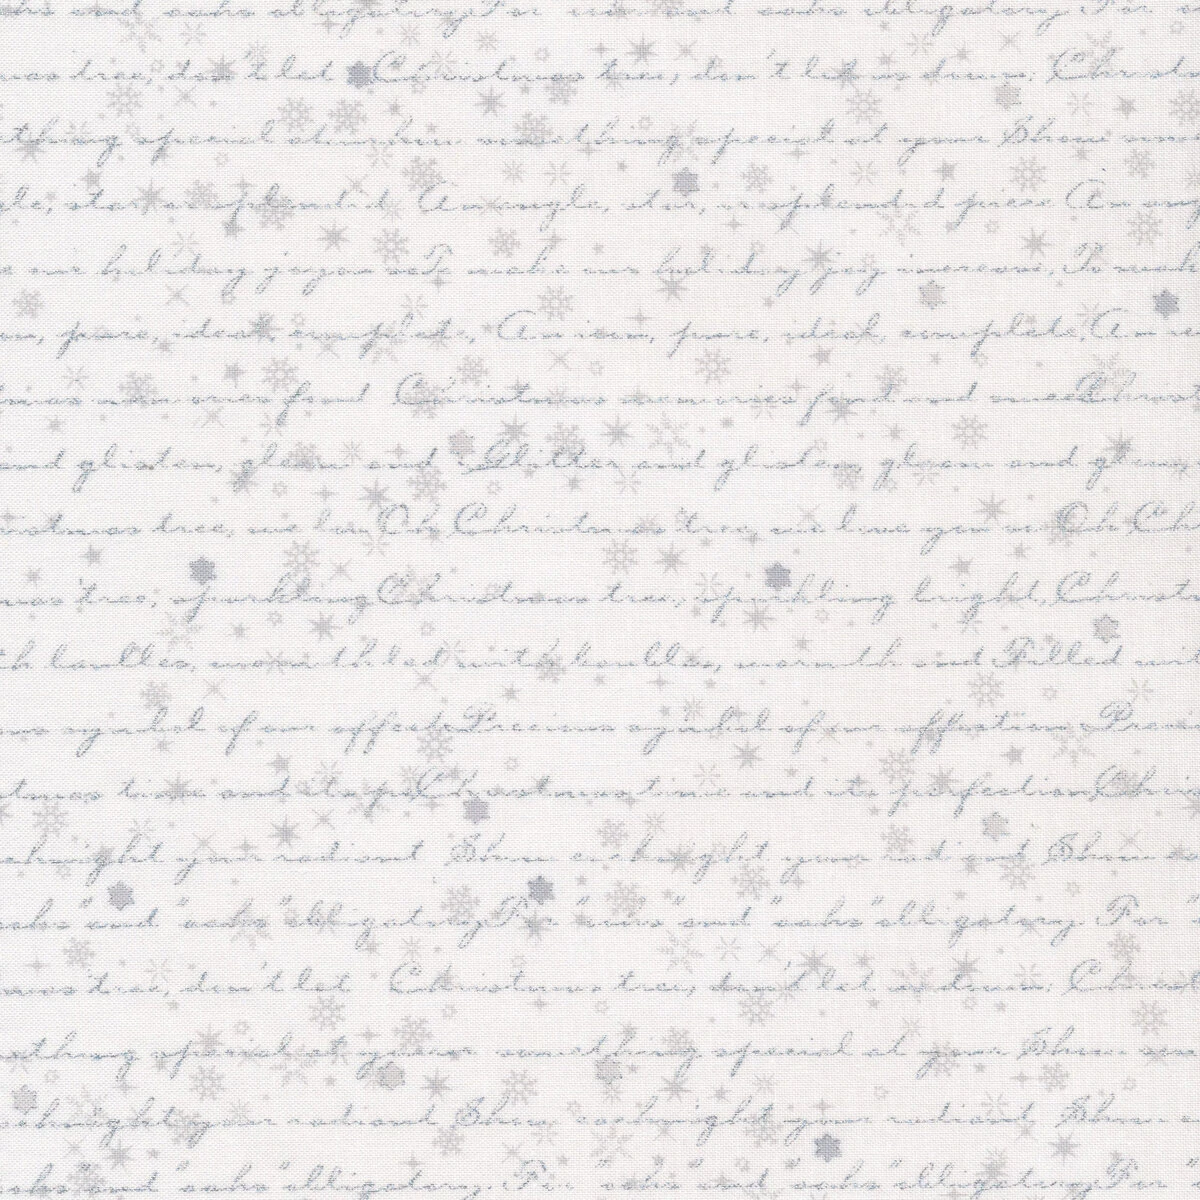 oohs and aahs obligatory For and aahs obligatory For
mas tree, don't let Christmas tree, don't let us down: Christm
thing special at something special at your Show some
gle, star, resplendid An angle, star, resplendid piece An ang
e our holiday joy To make our holiday joy increase, To make
on, pure, ideal, complete, An icon, pure, ideal, complete, An ic
tmas memories fond Christmas memories fond and sweet Christ
and glisten, gleam and Glitter and glisten, gleam and glow,
istmas tree, we lov Oh Christmas tree, we love you so Oh Ch
mas tree, sparkling Christmas tree, sparkling bright, Christm
th baubles, warmth Filled with baubles, warmth and Filled wit
ous symbol of our affecti Precious symbol of our affection Preci
stmas time and its pe Christmas time and its perfection Chri
each night your radiant Show each night your radiant Show ea
oohs" and "aahs" obligatory For "oohs" and "aahs" obligatory For "
mas tree, don't let Christmas tree, don't let us down: Christ
ething special at your something special at your Show som
each night your radiant Show each night your radiant Show e
oohs" and "aahs" obligatory. For "oohs" and "aahs" obligatory For "